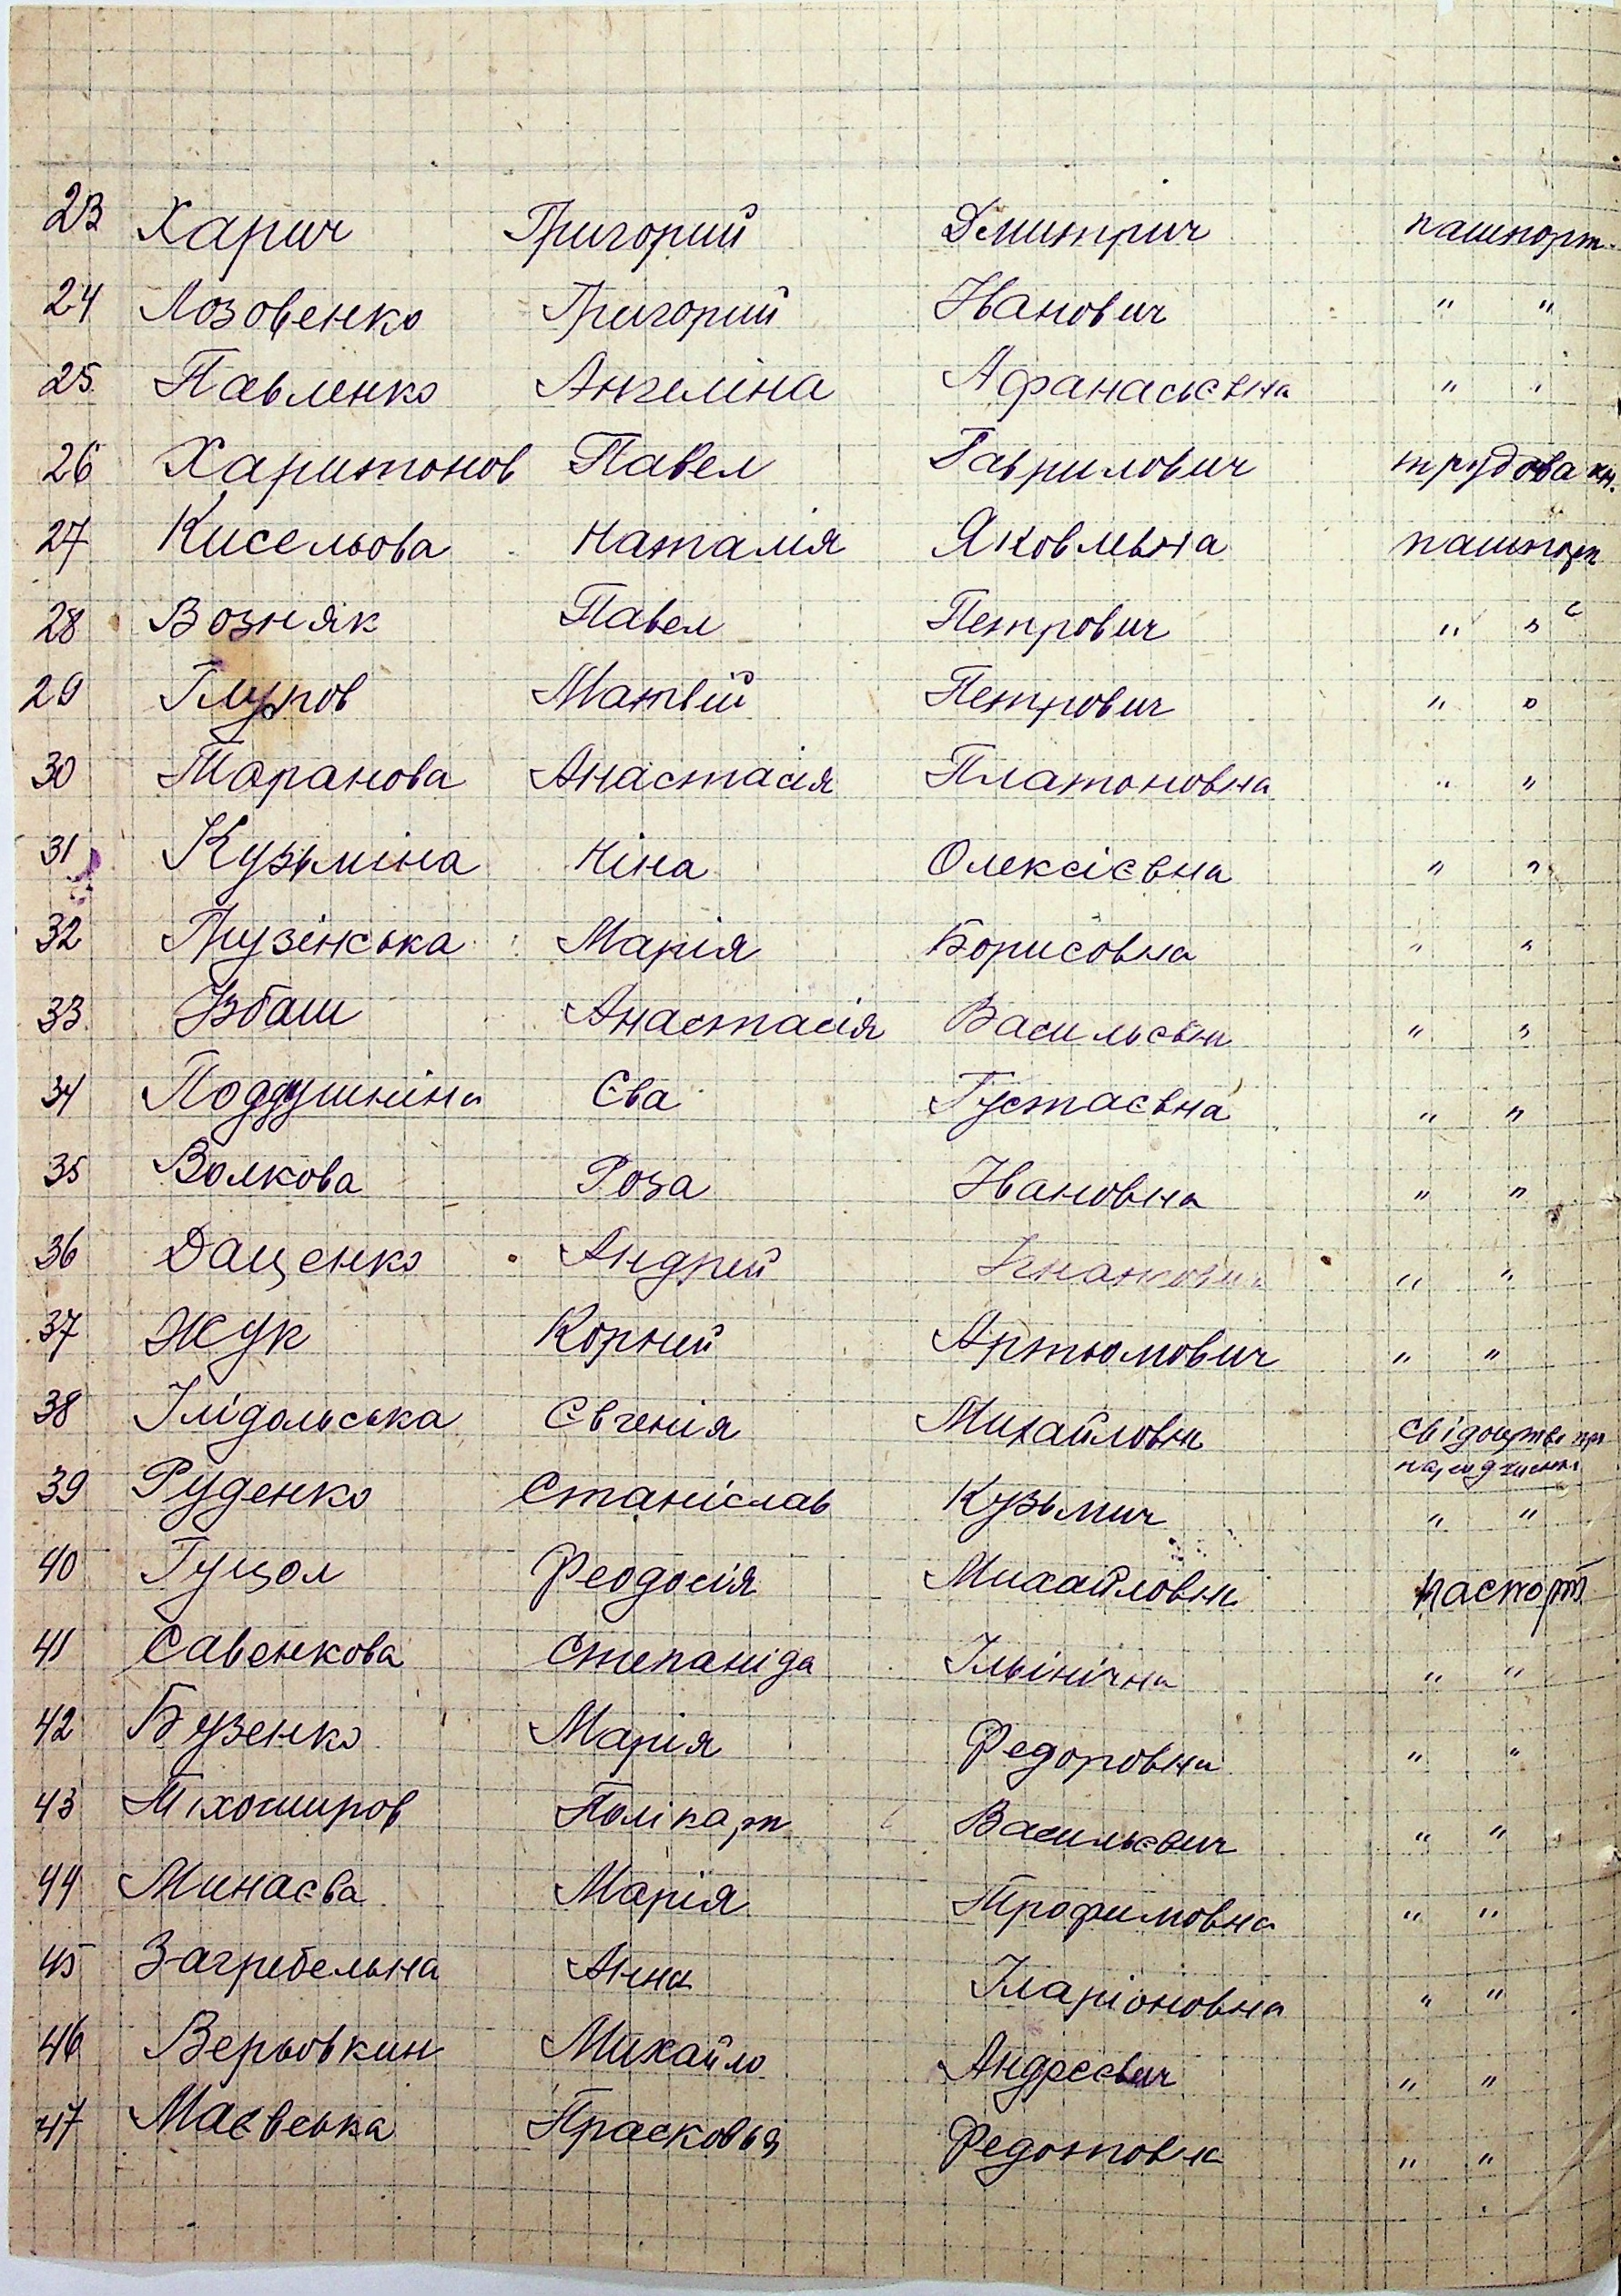 23 Харич Григорий Дмитрич пашпорт.
24 Лозовенко Григорий Іванович " "
25. Павленко Ангеліна Афанасьєвна " "
26 Харитонов Павел Гаврилович трудова кн.
27 Кисельова Наталія Яковлевна пашпорт
28 Возняк Павел Петрович " "
29 Глупов Матвій Петрович " "
30 Таранова Анастасія Платоновна " "
31 Кузьміна Ніна Олексієвна " "
32 Грузінська Марія Борисовна " "
33 Ізбаш Анастасія Васильєвна " "
34 Поддушкіна Єва Густаєвна " "
35 Волкова Роза Івановна " "
36 Даценко Андрей Ігнатович " "
37 Жук Корней Артюмович " "
38 Ілідольська Євгенія Михайловна свідоцтво про
народження
39 Руденко Станіслав Кузьмич " "
40 Гуцол Феодосія Михайловна паспорт
41 Савенкова Степаніда Ільінічна " "
42 Бузенко Марія Федоровна " "
43 Тіхомиров Полікарп Васильєвич " "
44 Минаєва Марія Трофимовна " "
45 Загребельна Анна Іларіоновна " "
46 Верьовкин Михайло Андреєвич " "
47 Маєвська Прасковья Федотовна " "